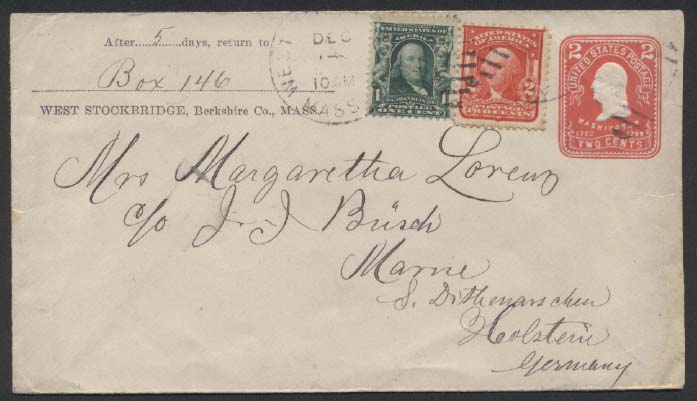 After.....5.....days, return to
Box 146
WEST STOCKBRIDGE, Berkshire Co., MASS.
WEST
DEC
14
10AM
MASS
UNITED STATES OF AMERICA
FRANKLIN
1 POSTAGE 1
ONE CENT
UNITED STATES OF AMERICA
POSTAGE 2
TWO CENTS
2 2
UNITED STATES POSTAGE
WASHIN
1732 1799
TWO CENTS
Mrs Margaretha Lorenz
c/o J. J Büsch
Marne
S. Dithmarschen
Holstein
Germany